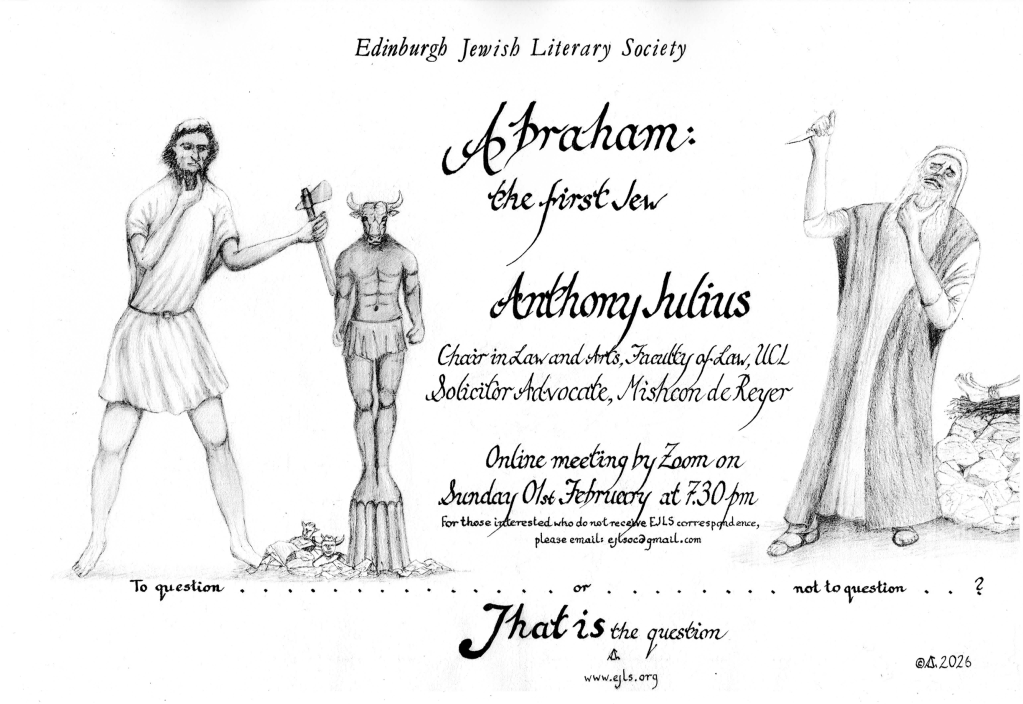 Edinburgh Jewish Literary Society
Abraham:
the first Jew
Anthony Julius
Chair in Law and Arts, Faculty of Law, UCL
Solicitor Advocate, Mishcon de Reyer
Online meeting by Zoom on
Sunday 01st February at 7.30 pm
For those interested who do not receive EJLS correspondence,
please email: ejlsoc@gmail.com
To question . . . . . . . . . . . . . . . . or . . . . . . . . not to question . . ?
That is the question
www.ejls.org
© 2026